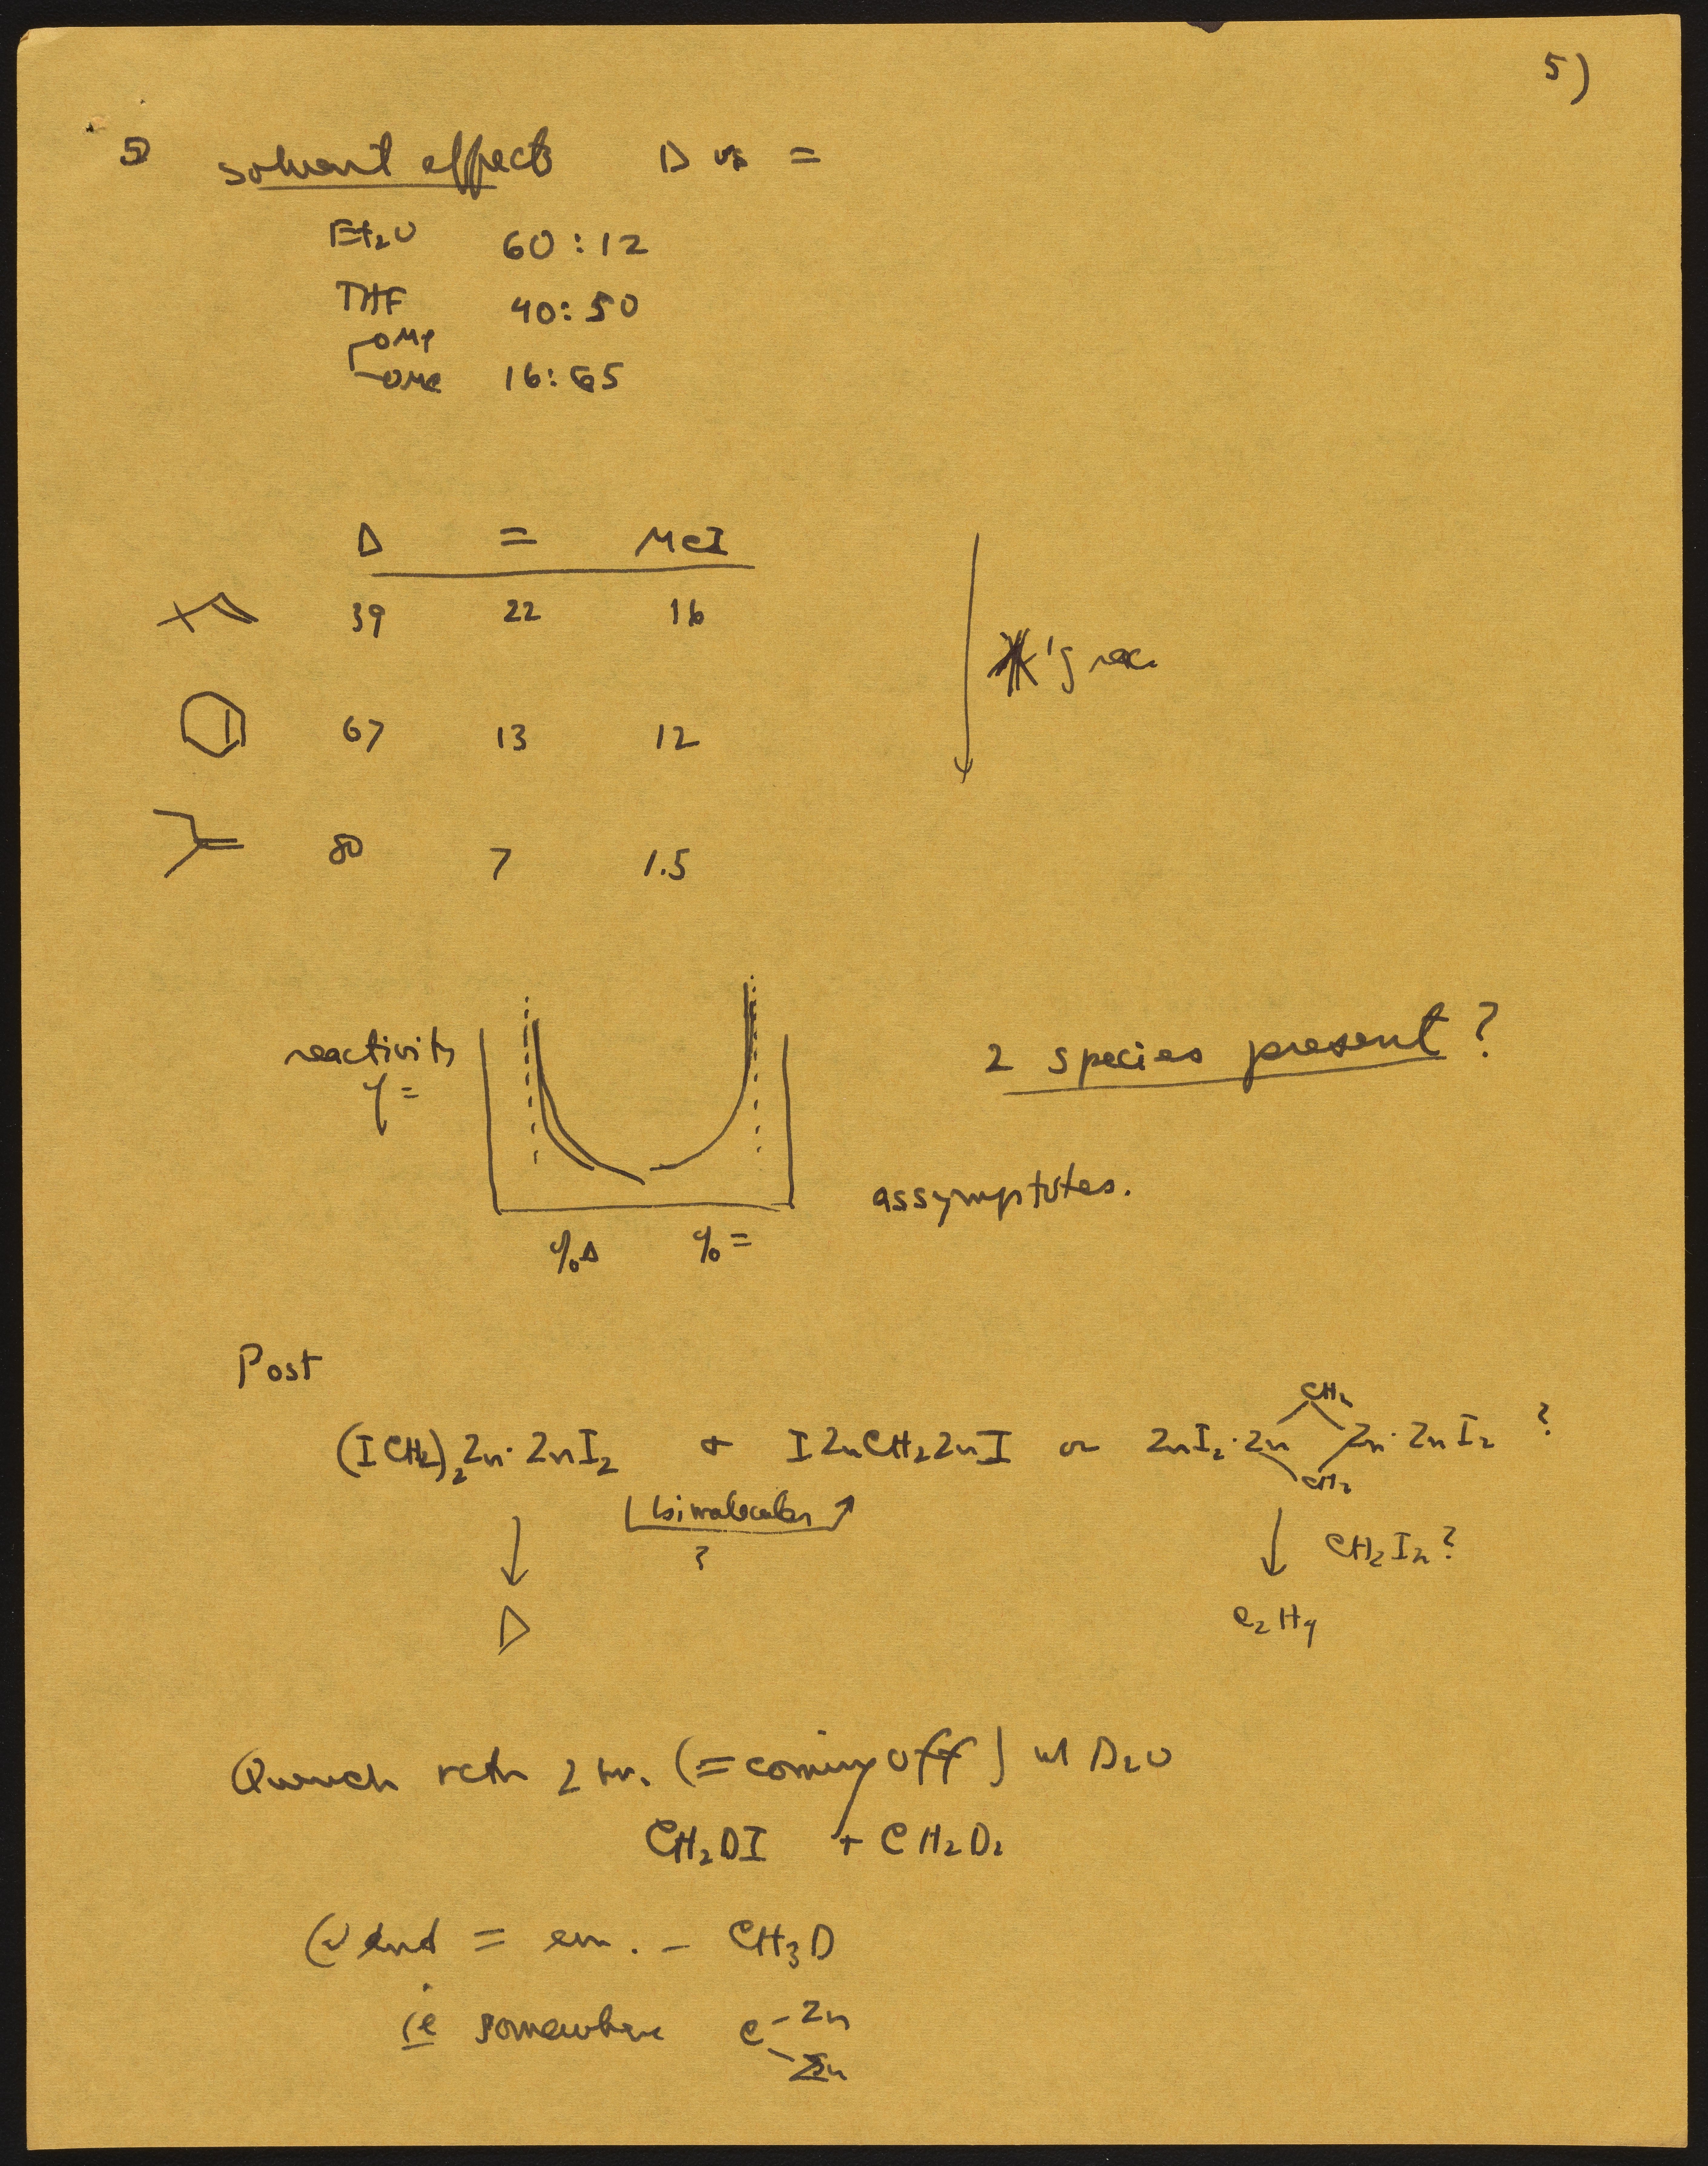 5)
5 solvent effects Δ vs =
Et₂O 60:12
THF 40:50
OMe
OMe 16:65
Δ = MeI
39 22 16
67 13 12
80 7 1.5
reactivity
2 species present?
assymptotes.
%Δ %=
Post
CH₂
(ICH₂)₂Zn·ZnI₂ + IZnCH₂ZnI or ZnI₂·Zn Zn·ZnI₂ ?
CH₂
bimolecular
?
CH₂I₂?
Δ
C₂H₄
Quench rctn 2 hr. (= coming off) w/ D₂O
CH₂DI + CH₂D₂
end = em. - CH₃D
ie somewhere C-Zn
Zn